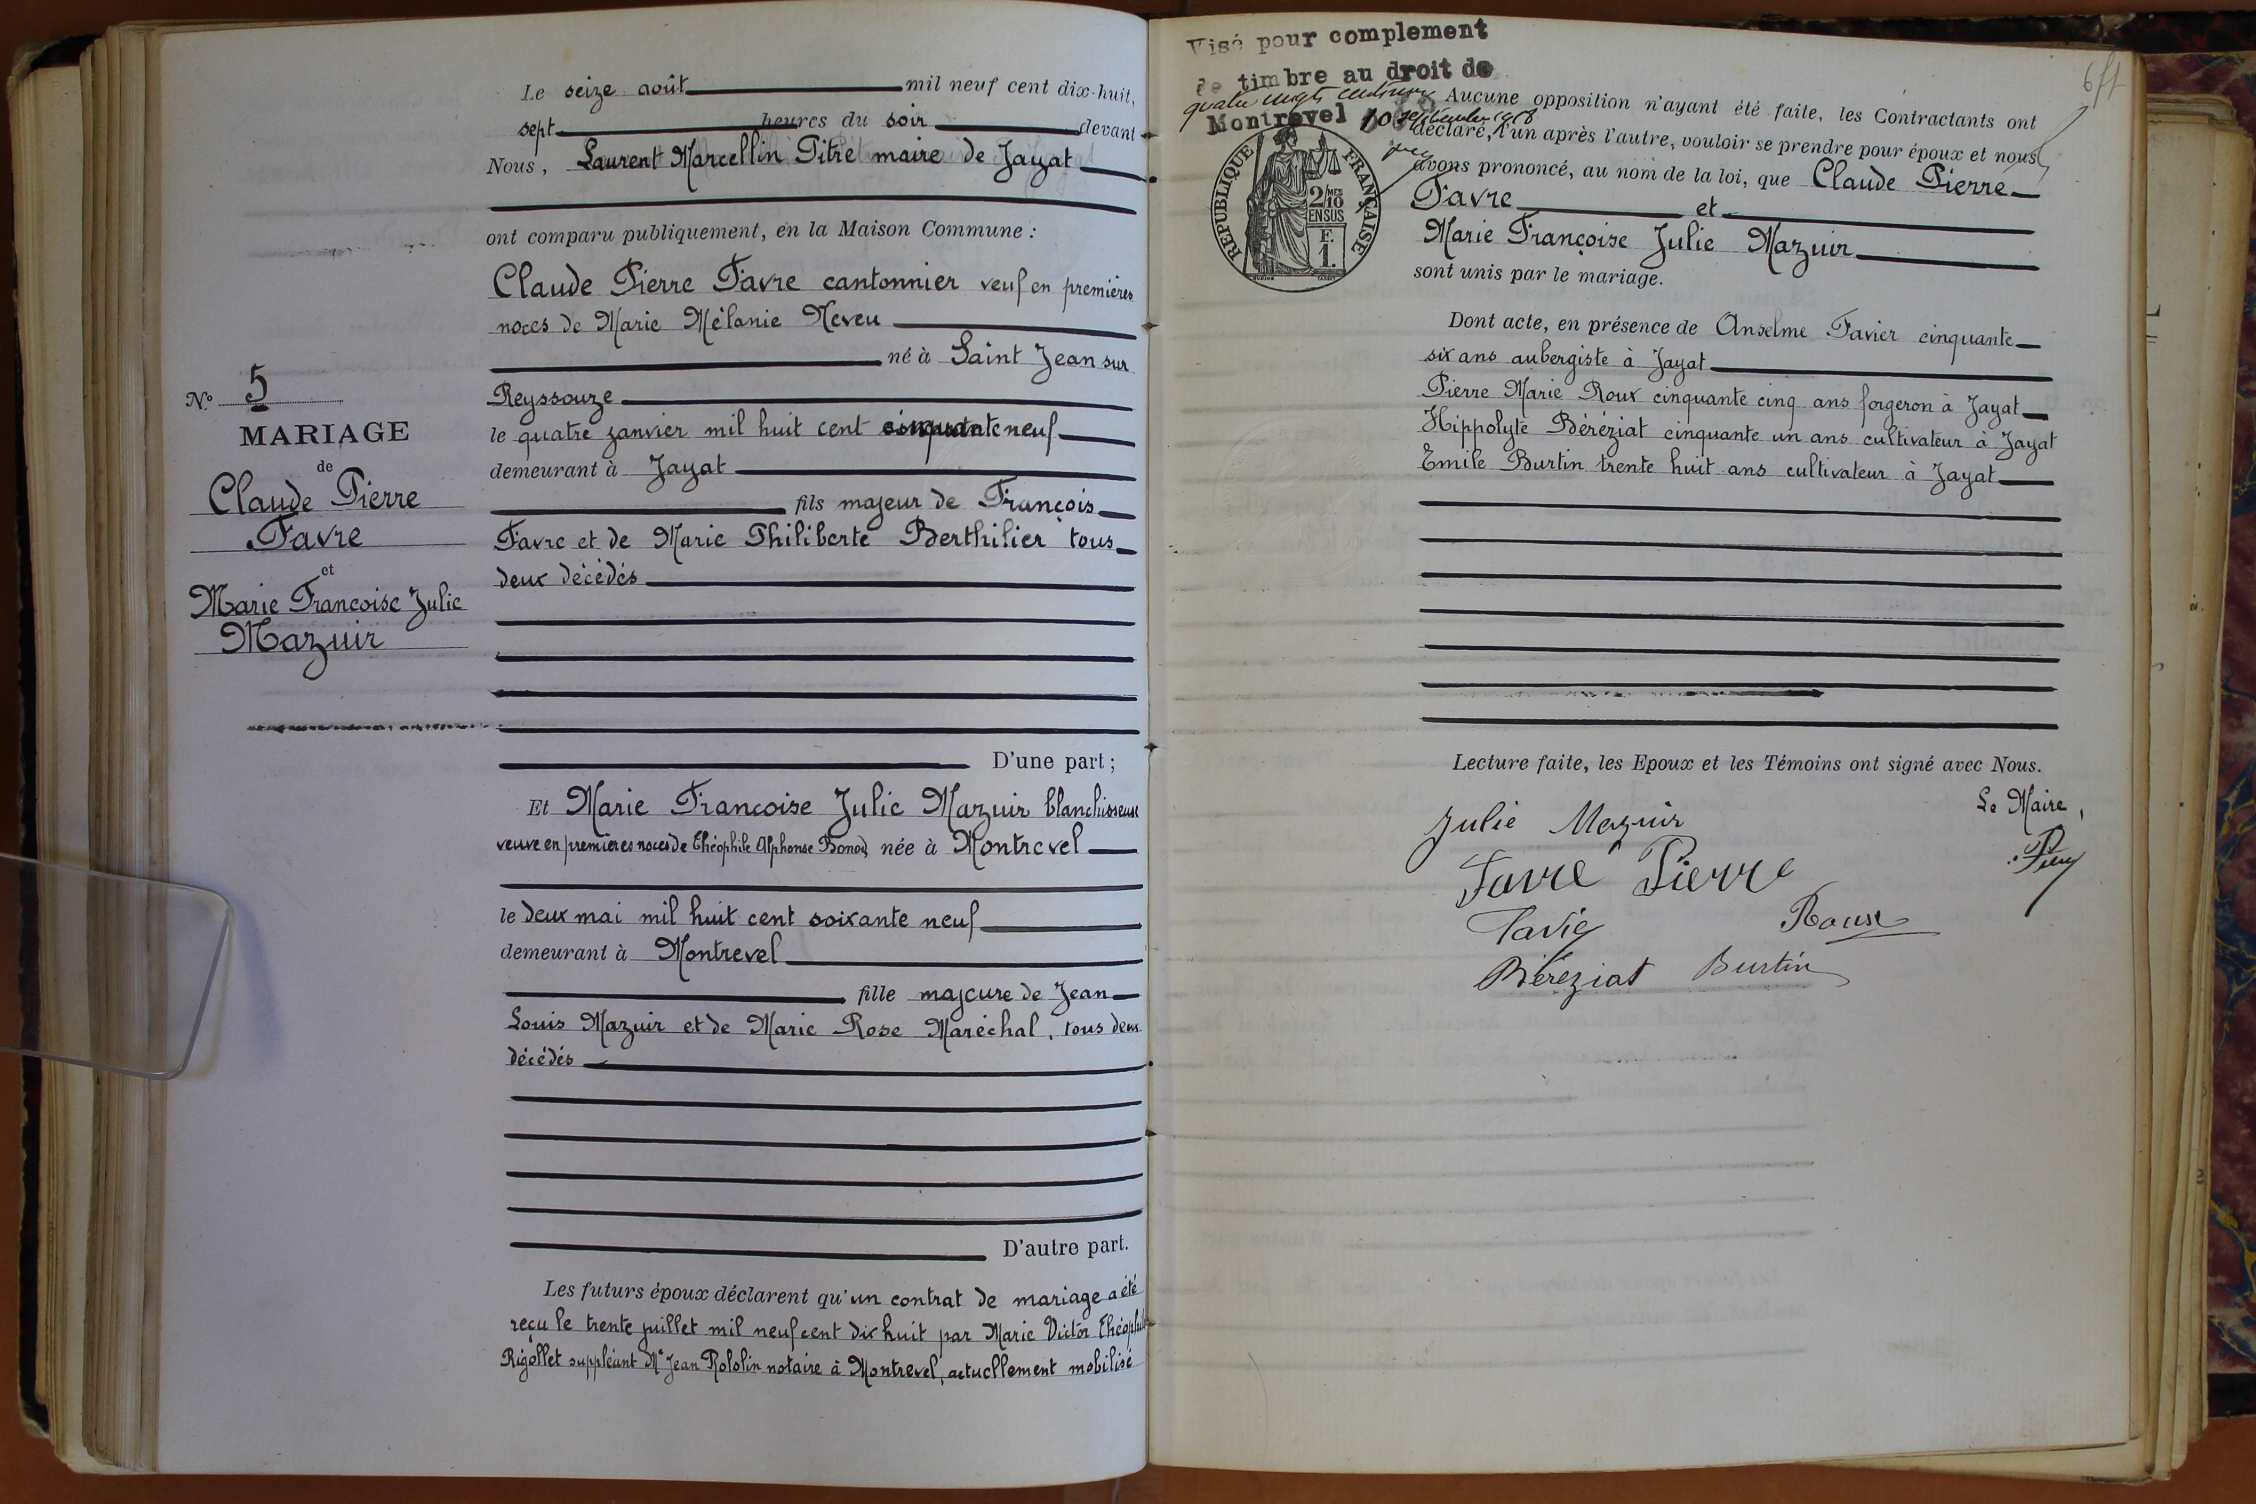 N.° 5
MARIAGE
de
Claude Pierre
Favre
et
Marie Francoise Julie
Mazuir
Le seize août mil neuf cent dix-huit,
sept heures du soir devant
Nous, Laurent Marcellin Pitre maire de Jayat
ont comparu publiquement, en la Maison Commune :
Claude Pierre Favre cantonnier veuf en premières
noces de Marie Mélanie Neveu
né à Saint Jean sur
Reyssouze
le quatre janvier mil huit cent cinquante neuf
demeurant à Jayat
fils majeur de François
Favre et de Marie Philiberte Berthilier tous
deux décédés
D'une part ;
Et Marie Francoise Julie Mazuir blanchisseuse
veuve en premières noces de Théophile Alphonse Bonod née à Montrevel
le deux mai mil huit cent soixante neuf
demeurant à Montrevel
fille majeure de Jean
Louis Mazuir et de Marie Rose Maréchal, tous deux
décédés
D'autre part.
Les futurs époux déclarent qu'un contrat de mariage a été
reçu le trente juillet mil neuf cent dix huit par Marie Victor Théophile
Rigollet suppléant Me Jean Robolin notaire à Montrevel, actuellement mobilisé
Visé pour complement
de timbre au droit de
quatre vingts centimes
Montrevel 10 septembre 1918
REPUBLIQUE FRANÇAISE
2/10 MES
EN SUS
F.
1.
Aucune opposition n'ayant été faite, les Contractants ont
déclaré, l'un après l'autre, vouloir se prendre pour époux et nous
avons prononcé, au nom de la loi, que Claude Pierre
Favre et
Marie Françoise Julie Mazuir
sont unis par le mariage.
Dont acte, en présence de Anselme Favier cinquante
six ans aubergiste à Jayat
Pierre Marie Roux cinquante cinq ans forgeron à Jayat
Hippolyte Béréziat cinquante un ans cultivateur à Jayat
Emile Burtin trente huit ans cultivateur à Jayat
Lecture faite, les Epoux et les Témoins ont signé avec Nous.
Le Maire,
Julie Mazuir
Favre Pierre
Roux
Béréziat Burtin